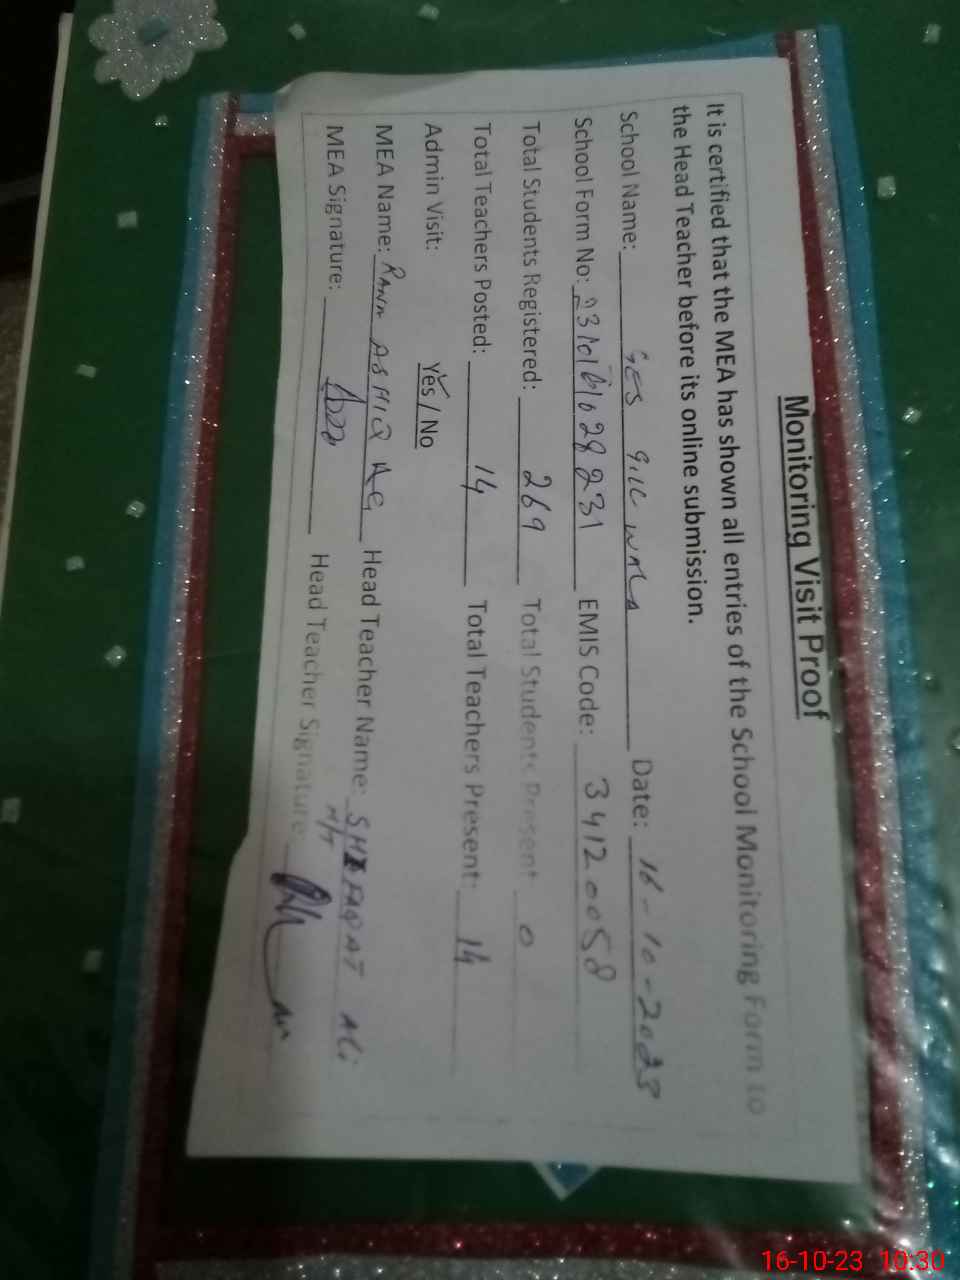 Monitoring Visit Proof
It is certified that the MEA has shown all entries of the School Monitoring Form to
the Head Teacher before its online submission.
School Name: GES GILL WALA Date: 16-10-2023
School Form No: EMIS Code: 34120058
Total Students Registered: 269 Total Students Present 0
Total Teachers Posted: 14 Total Teachers Present: 14
Admin Visit: Yes / No
MEA Name: RANA ASHIQ ALI Head Teacher Name: SHAFAQAT ALI
MEA Signature: Head Teacher Signature:
16-10-23 10:30